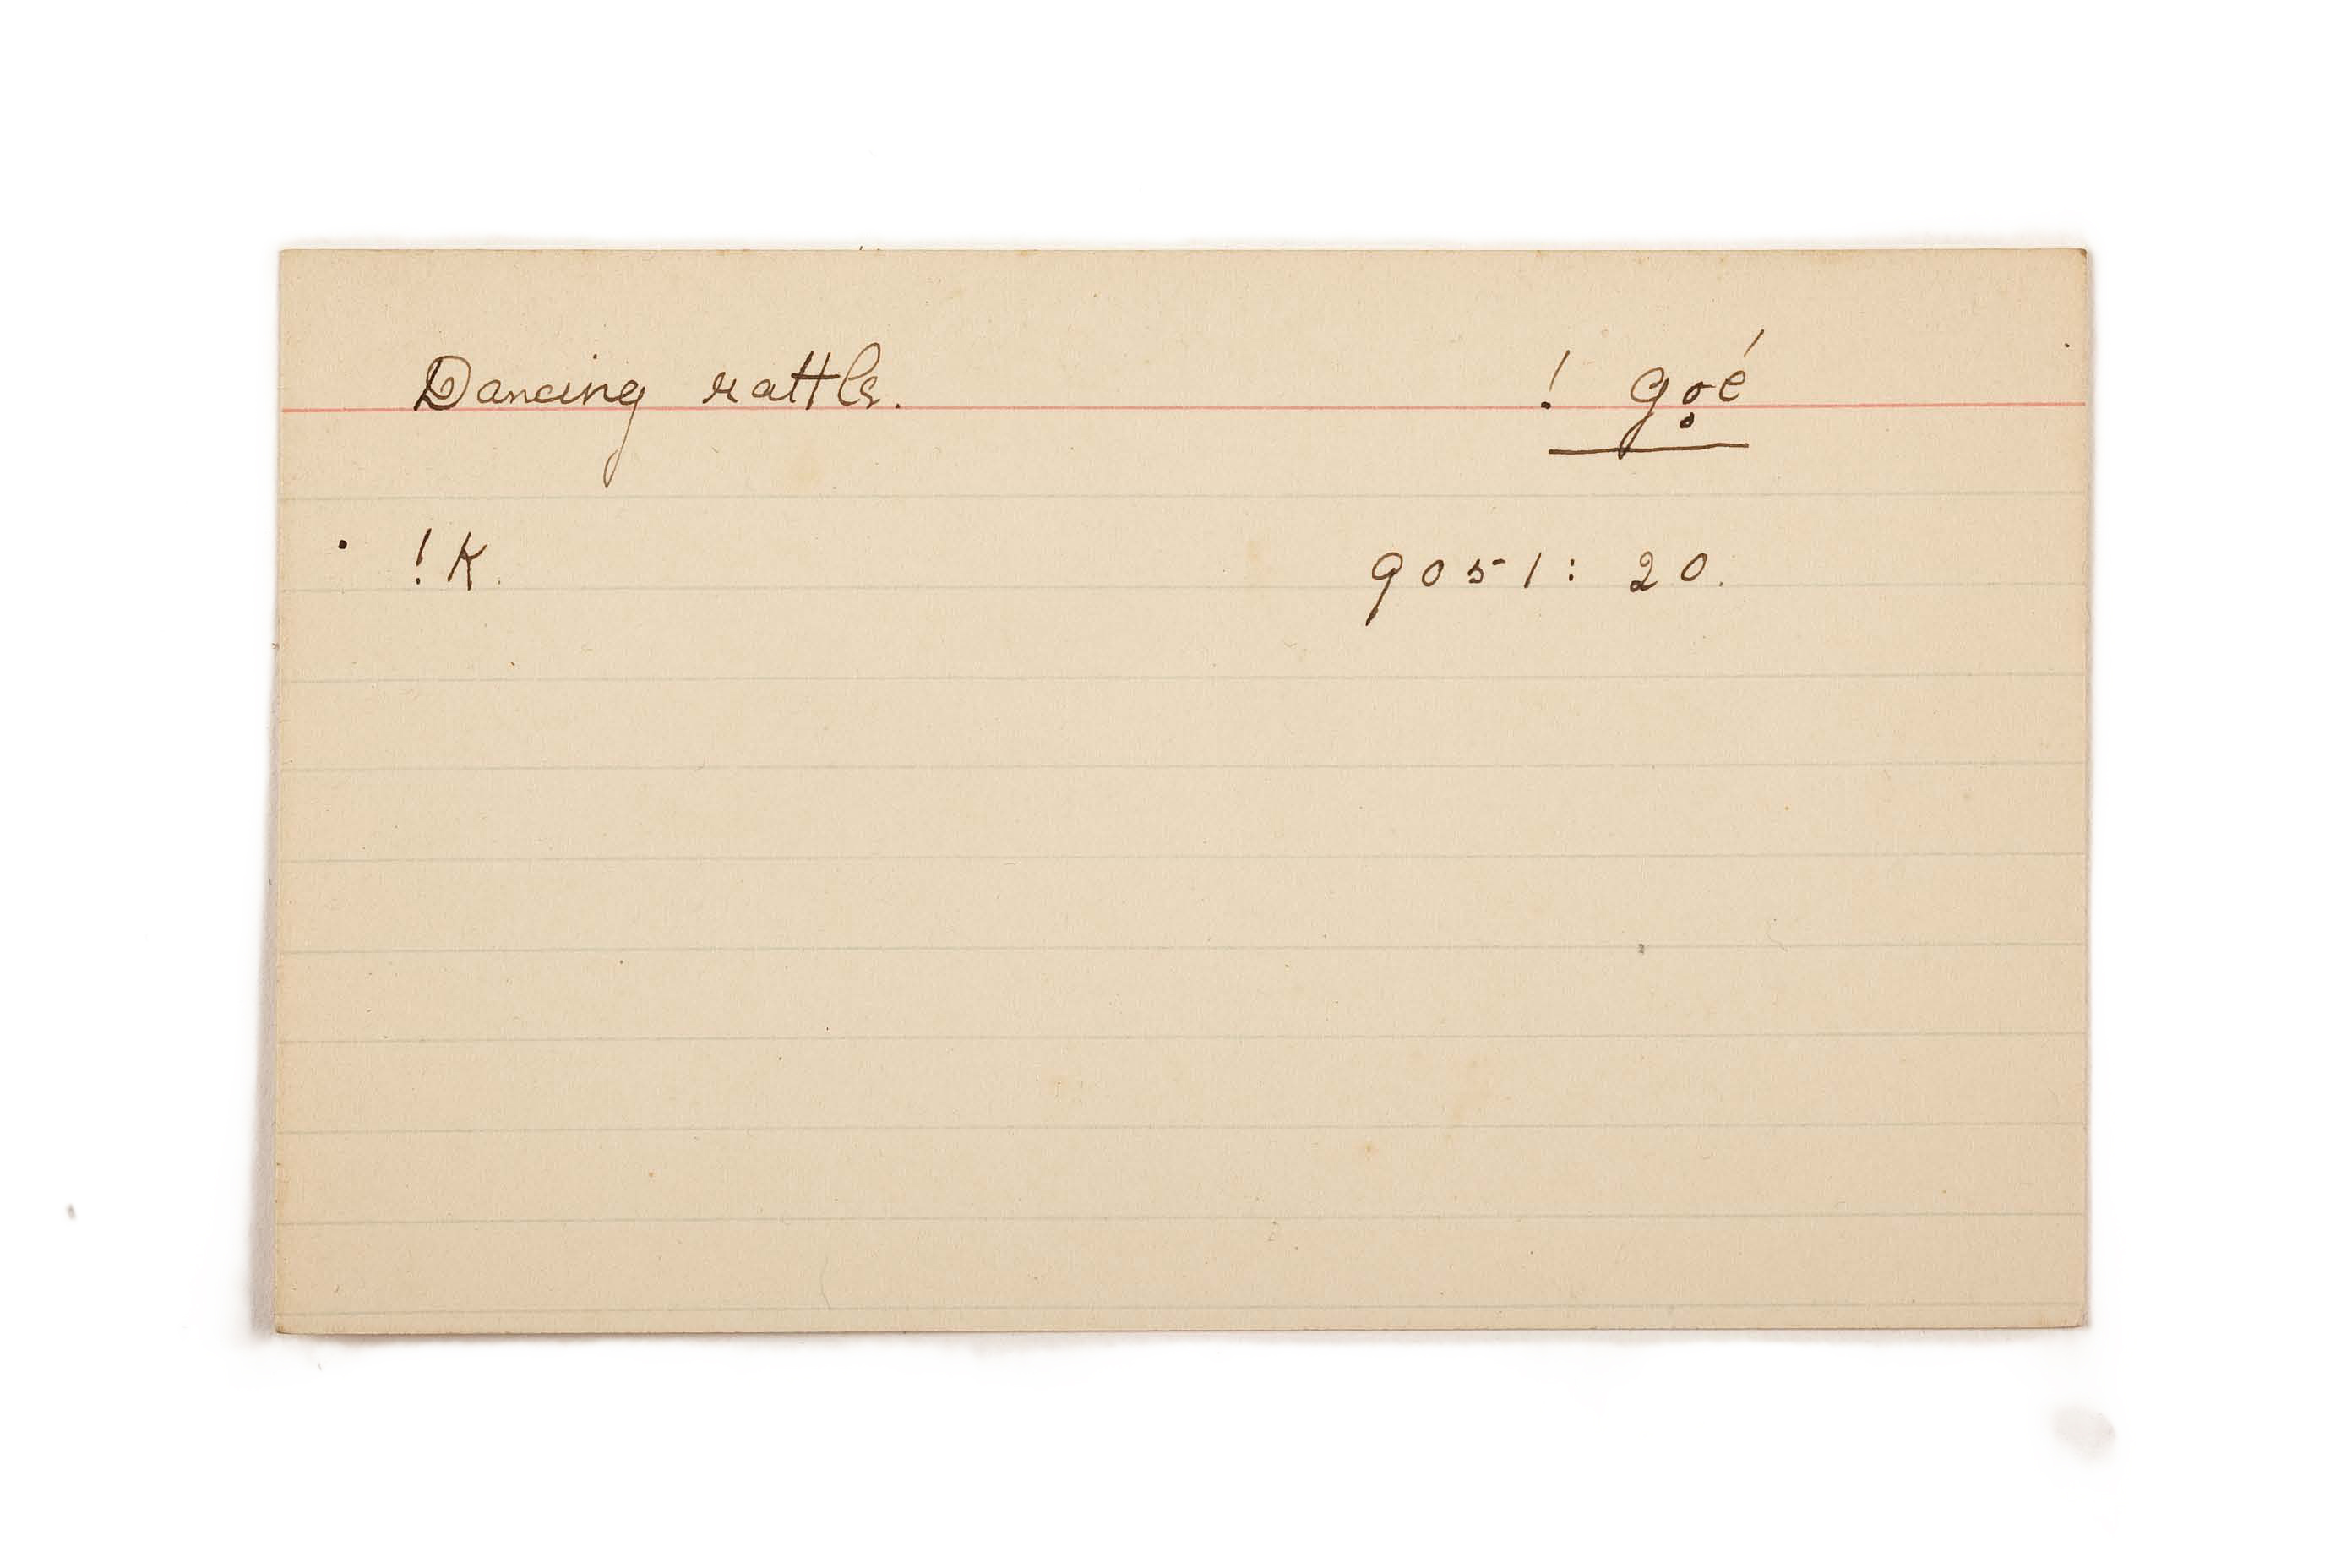 Dancing rattle. ! gọé
!K. 9051: 20.